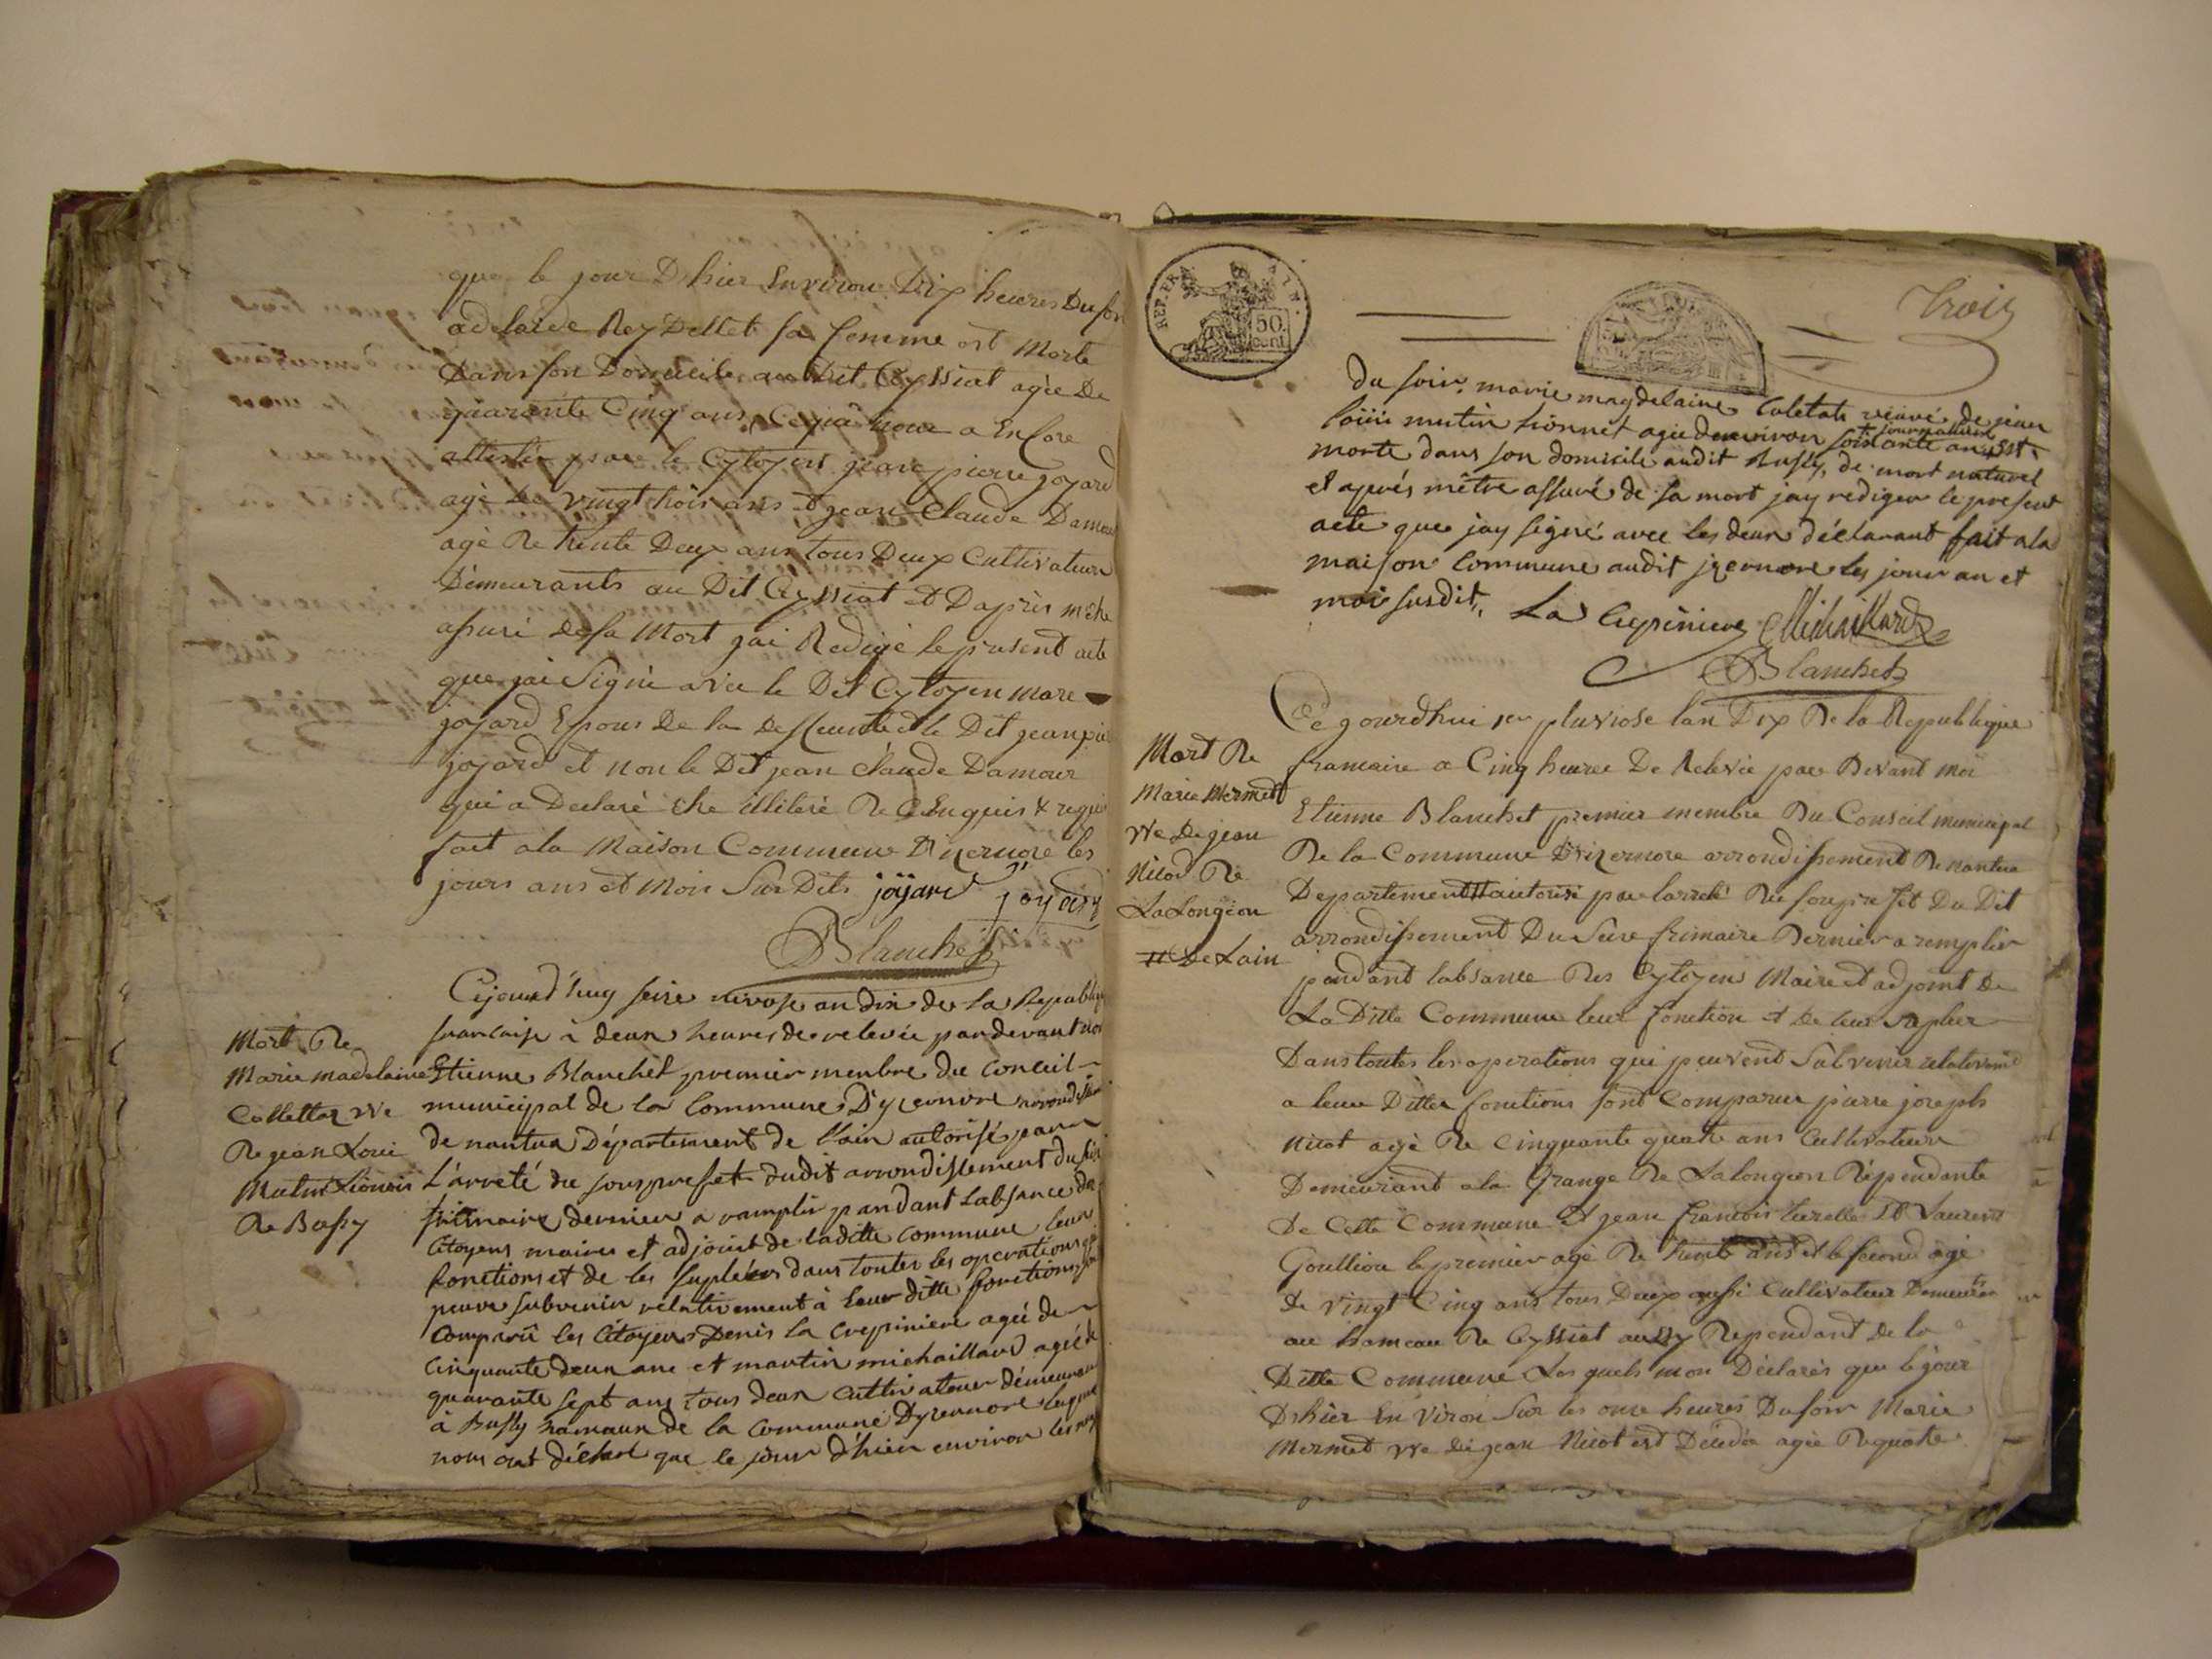 que le jour Dhier Environ Dix heures Du soir
adelaide Reydellet sa femme est Morte
Dans son Domicile au Dit Ceyssiat agée De
quarante Cinq ans, Ce qui nous a Encore
attesté par le Cytoyens jean pierre joyard
agé de vingt trois ans et jean Claude Damour
agé De trente Deux ans tous Deux Cultivateurs
Demeurants au Dit Ceyssiat et Daprès m'etre
assuré de sa Mort jai Redigé le present acte
que jai Signé avec le Dit Cytoyen Marc
joyard Epoux De la Deffunte et le Dit jean pie
joyard et non le Dit jean Claude Damour
qui a Declaré etre illiteré De Ce Enquis & requis
fait a la Maison Commune D'izernore les
jours ans et Mois Sus Dits joÿard joyard
Blanchet
Mort De
Marie madelaine
Collettaz vve
De jean Loui
Mutin Lionnois
De Bussy
Cejourd'huy seise nivose an dix de la Republiq
francaise à deux heures de relevée pardevant moi
Etienne Blanchet premier menbre du conceil
municipal de la commune D'yzernore arrondissem
de nantua Département de l'ain autorisé par
L'arreté du sousprefet dudit arrondissement du sei
frimaire dernier a ramplir pandant Labsance des
Citoyens maires et adjoint de laditte commune leurs
fonctions et de les supléer dans toutes les operations qui
peuve subvenir relativement à leur ditte fonctions son
comparû les Citoyens Denis la crepiniere agée de
cinquante deux ans et martin michaillard agé de
quarante sept ans tous deux cultivateur démeurans
à Bussy hamaux de la commune Dyzernore lesquel
nous ont déclaré que le jour d'hier environ les
REP. FRA
50
cent.
Trois
du soir, marie magdelaine Coletat veuve de jean
loüis mutin Lionnet agée denviron soixante ans + journalliere est
morte dans son domicile audit Bussy, de mort naturel
et aprés mêtre assuré de sa mort jay rediger le present
acte que jay signé avec les deux déclarant fait a la
maison commune audit jzernore les jour an et
mois susdit. La Crepiniere Michaillard
Blanchet
Mort De
Marie Mermet
vve De jean
Nicod De
La Longeon
# De Lain
Ce jourdhui 1er pluviose lan Dix De la Republique
francaise a Cinq heures De Relevée par Devant moi
Etienne Blanchet premier membre Du Conseil municipal
De la Commune D'izernore arrondissement De nantua
Departement # autorisé par larreté Du souprefet Du Dit
arrondissement Du Seise frimaire Dernier a remplir
pendant labsance Des Cytoyens Maire et adjoint De
La Ditte Commune leur fonction et de leur supleer
Dans toutes les operations qui peuvent Subvenir relativement
a leurs Dittes fonctions sont Comparus pierre joseph
Nicot agé De Cinquante quatre ans Cultivateur
Demeurant a la Grange De Lalongeon Dépendante
De Cette Commune Et jean francois Turelle Et Laurent
Goullion le premier agé De trente ans et le second agé
De Vingt Cinq ans tous Deux aussi Cultivateur Demeuran
au hameau De Ceyssiat aussy Dependant de la
Ditte Commune Lesquels mon Declarés que le jour
Dhier Environ Sur les onse heures Du soir Marie
Mermet vve De jean Nicot est Décédée agée De quatre